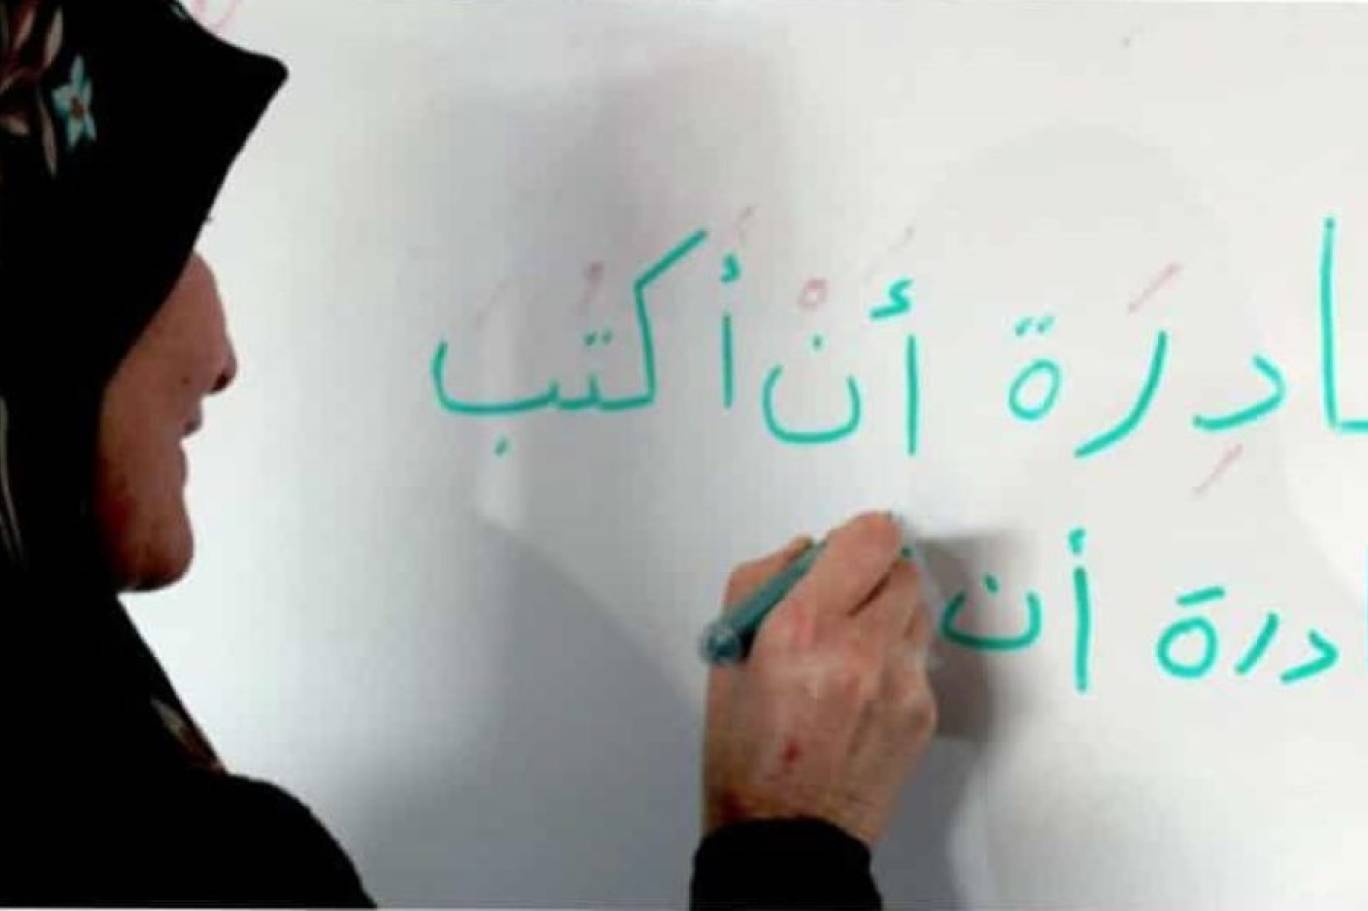 ادِرَة أَنْ أَكتُب
ادرة أن أ